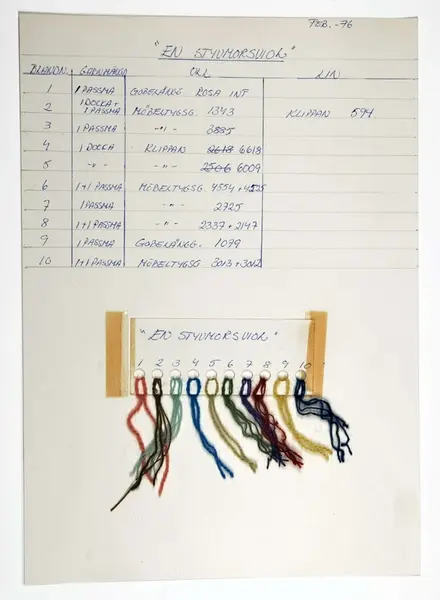 FEB. -76
"EN STYVMORSVIOL"
BLANDN. GARNMÄNGD ULL LIN
1 1 PASSMA GOBELÄNGG. ROSA INT
2 1 DOCKA + 1 PASSMA MÖBELTYGSG. 1343 KLIPPAN 594
3 1 PASSMA -"- 3885
4 1 DOCKA KLIPPAN 2613 6618
5 -"- -"- 2506 6009
6 1+1 PASSMA MÖBELTYGSG. 4554 + 4525
7 1 PASSMA -"- 2725
8 1+1 PASSMA -"- 2337 + 2147
9 1 PASSMA GOBELÄNGG. 1079
10 1+1 PASSMA MÖBELTYGSG 3013 + 3012
"EN STYVMORSVIOL"
1 2 3 4 5 6 7 8 9 10